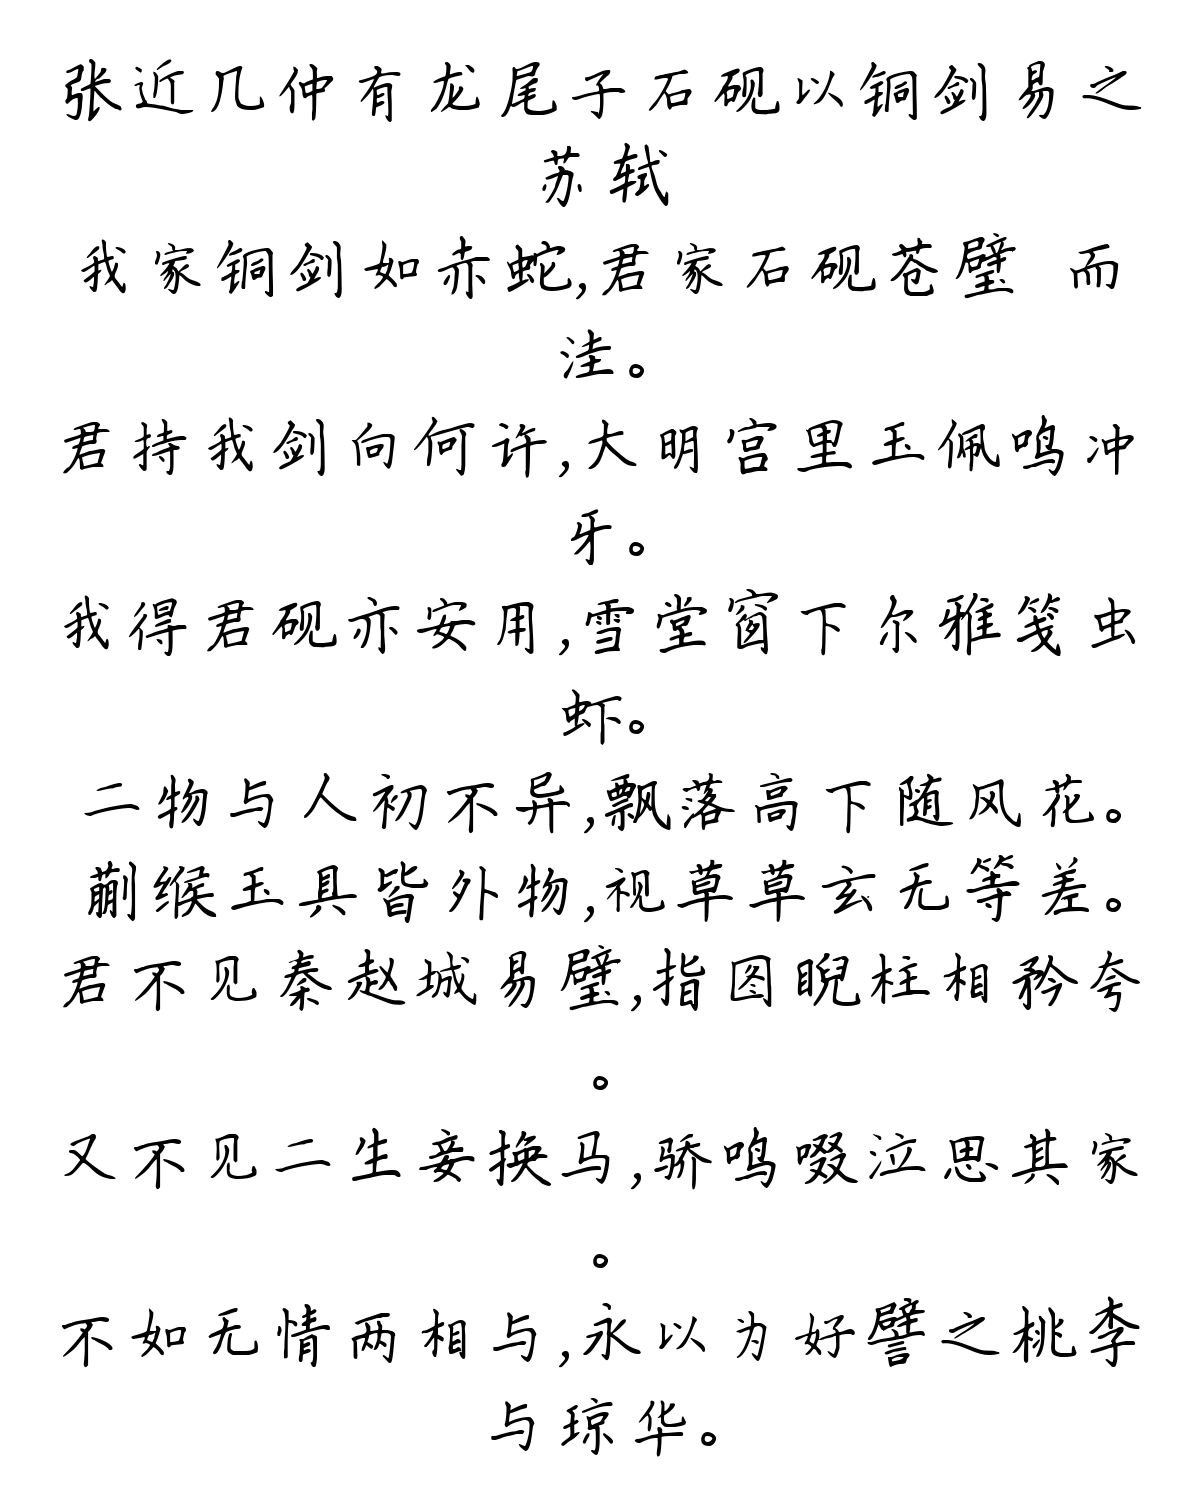 张近几仲有龙尾子石砚以铜剑易之
苏轼
我家铜剑如赤蛇,君家石砚苍璧 而
洼。
君持我剑向何许,大明宫里玉佩鸣冲
牙。
我得君砚亦安用,雪堂窗下尔雅笺虫
虾。
二物与人初不异,飘落高下随风花。
蒯缑玉具皆外物,视草草玄无等差。
君不见秦赵城易璧,指图睨柱相矜夸
。
又不见二生妾换马,骄鸣啜泣思其家
。
不如无情两相与,永以为好譬之桃李
与琼华。